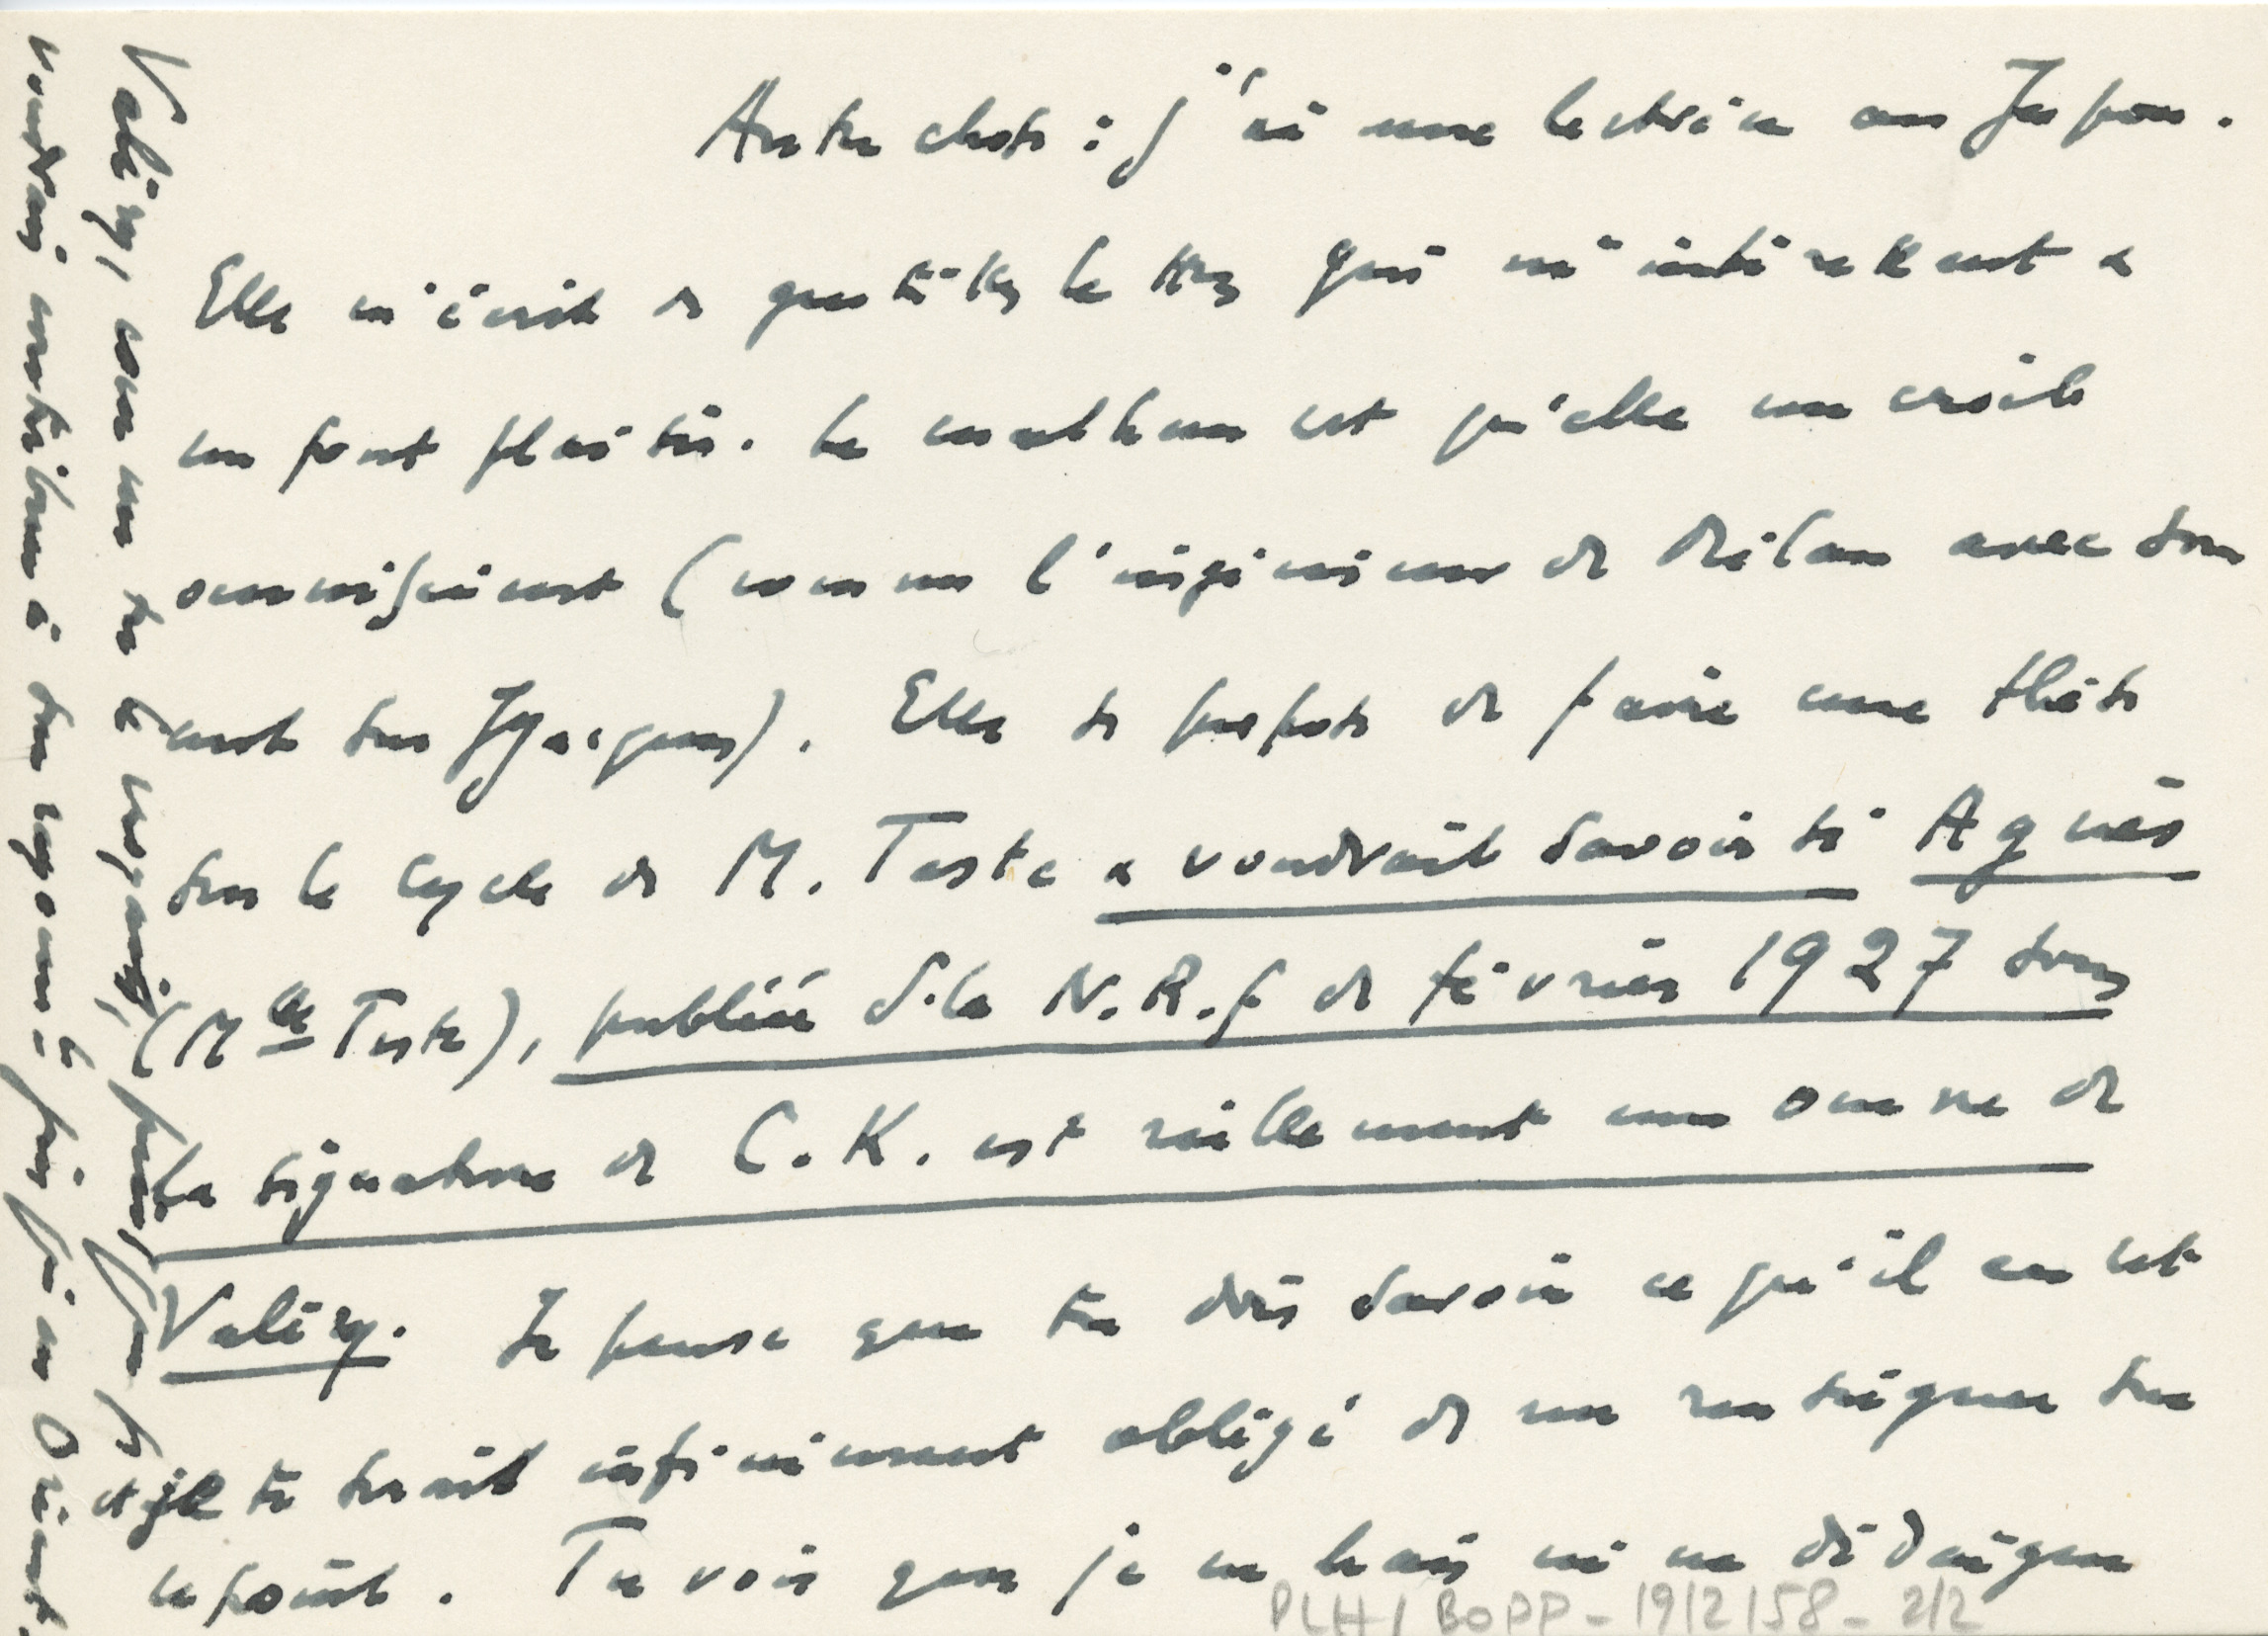 Autre chose : j'ai une lectrice au Japon.
Elle m'écrit de gentilles lettres qui m'intéressent et
me font plaisir. Le malheur est qu'elle me croit
omniscient (comme l'ingénieur de Milan avec son
sur Huysmans). Elle se propose de faire une thèse
sur le cycle de M. Teste et voudrait savoir si Agnès
(Mme Teste), publiée d. la N.R.f de février 1927 sous
la signature de C.K. est réellement une œuvre de
Valéry. Je pense que tu dois savoir ce qu'il en est
et je te serais infiniment obligé de me renseigner sur
ce point. Tu vois que je ne hais ni ne dédaigne
Valéry, comme tu le
voudrais contribuer à son renom jusqu'en Orient.
PLH/BOPP-19/2/58-2/2